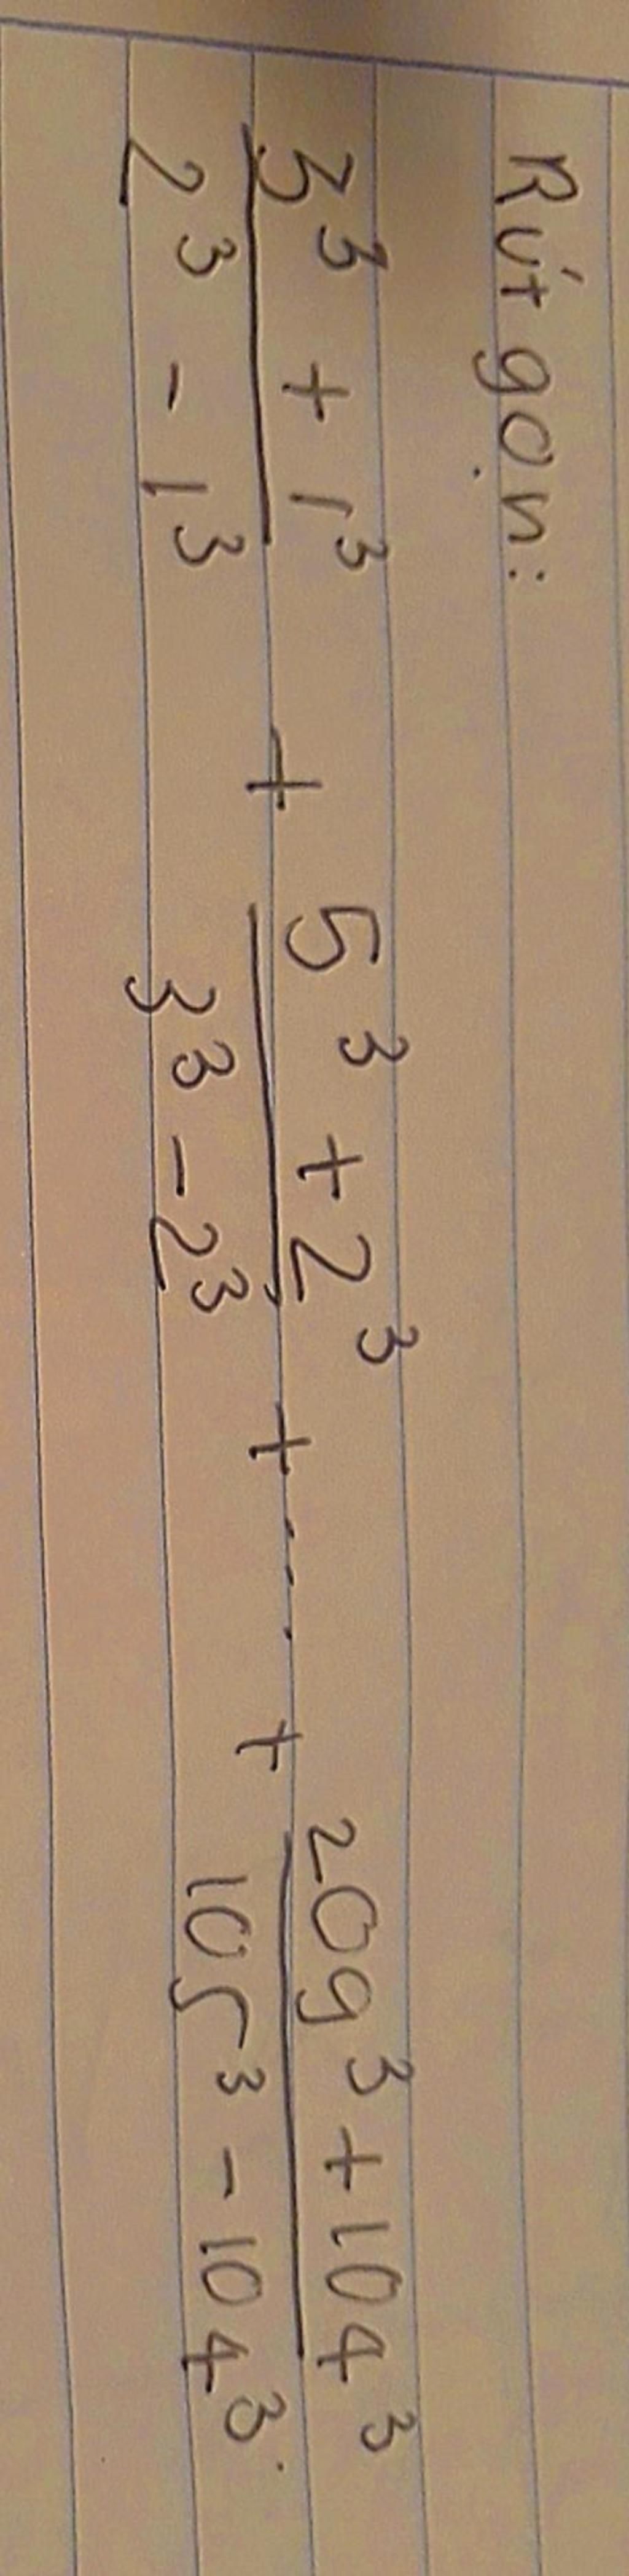 Rút gọn:
3³ + 1³ / 2³ - 1³ + 5³ + 2³ / 3³ - 2³ + .... + 209³ + 104³ / 105³ - 104³.